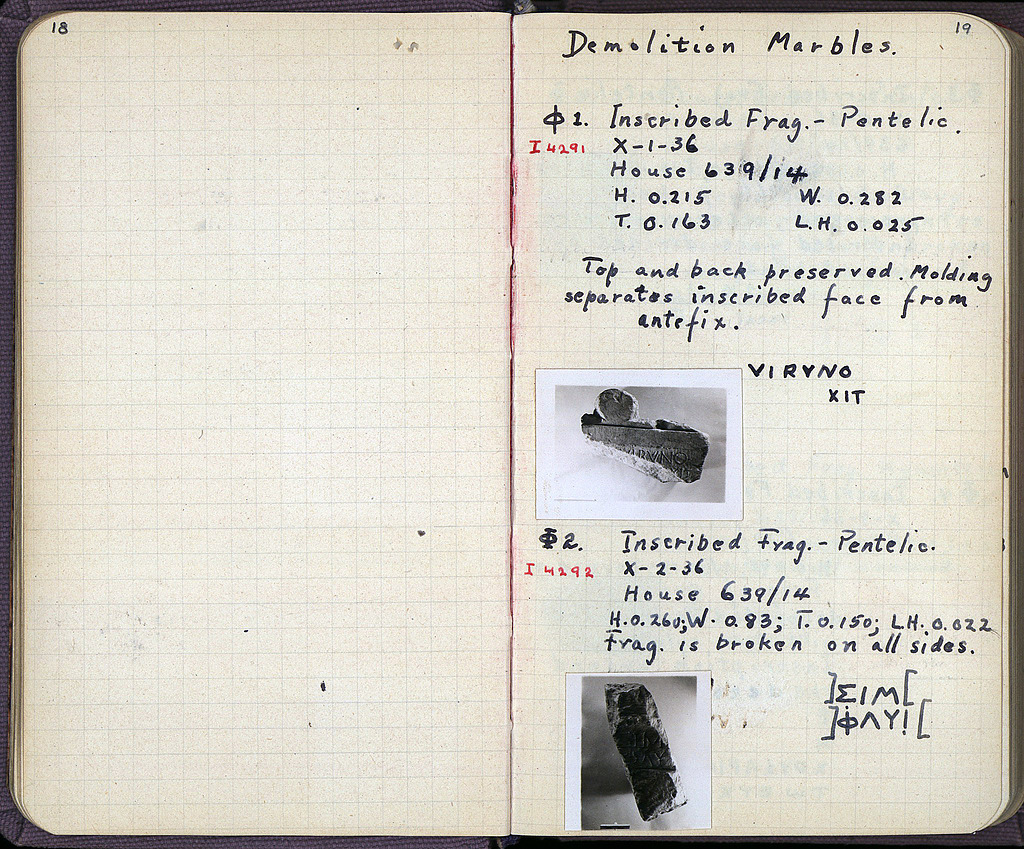 18
19
Demolition Marbles.
Φ 1. Inscribed Frag.- Pentelic.
I 4291 X-1-36
House 639/14
H. 0.215 W. 0.282
T. 0.163 L.H. 0.025
Top and back preserved. Molding
separates inscribed face from
antefix.
VIRVNO
XIT
VIRVNO
Φ2. Inscribed Frag.- Pentelic.
I 4292 X-2-36
House 639/14
H.0.260; W. 0.83; T. 0.150; L.H. 0.022
Frag. is broken on all sides.
]ΣΙΜ[
]ΦΛΥΙ[